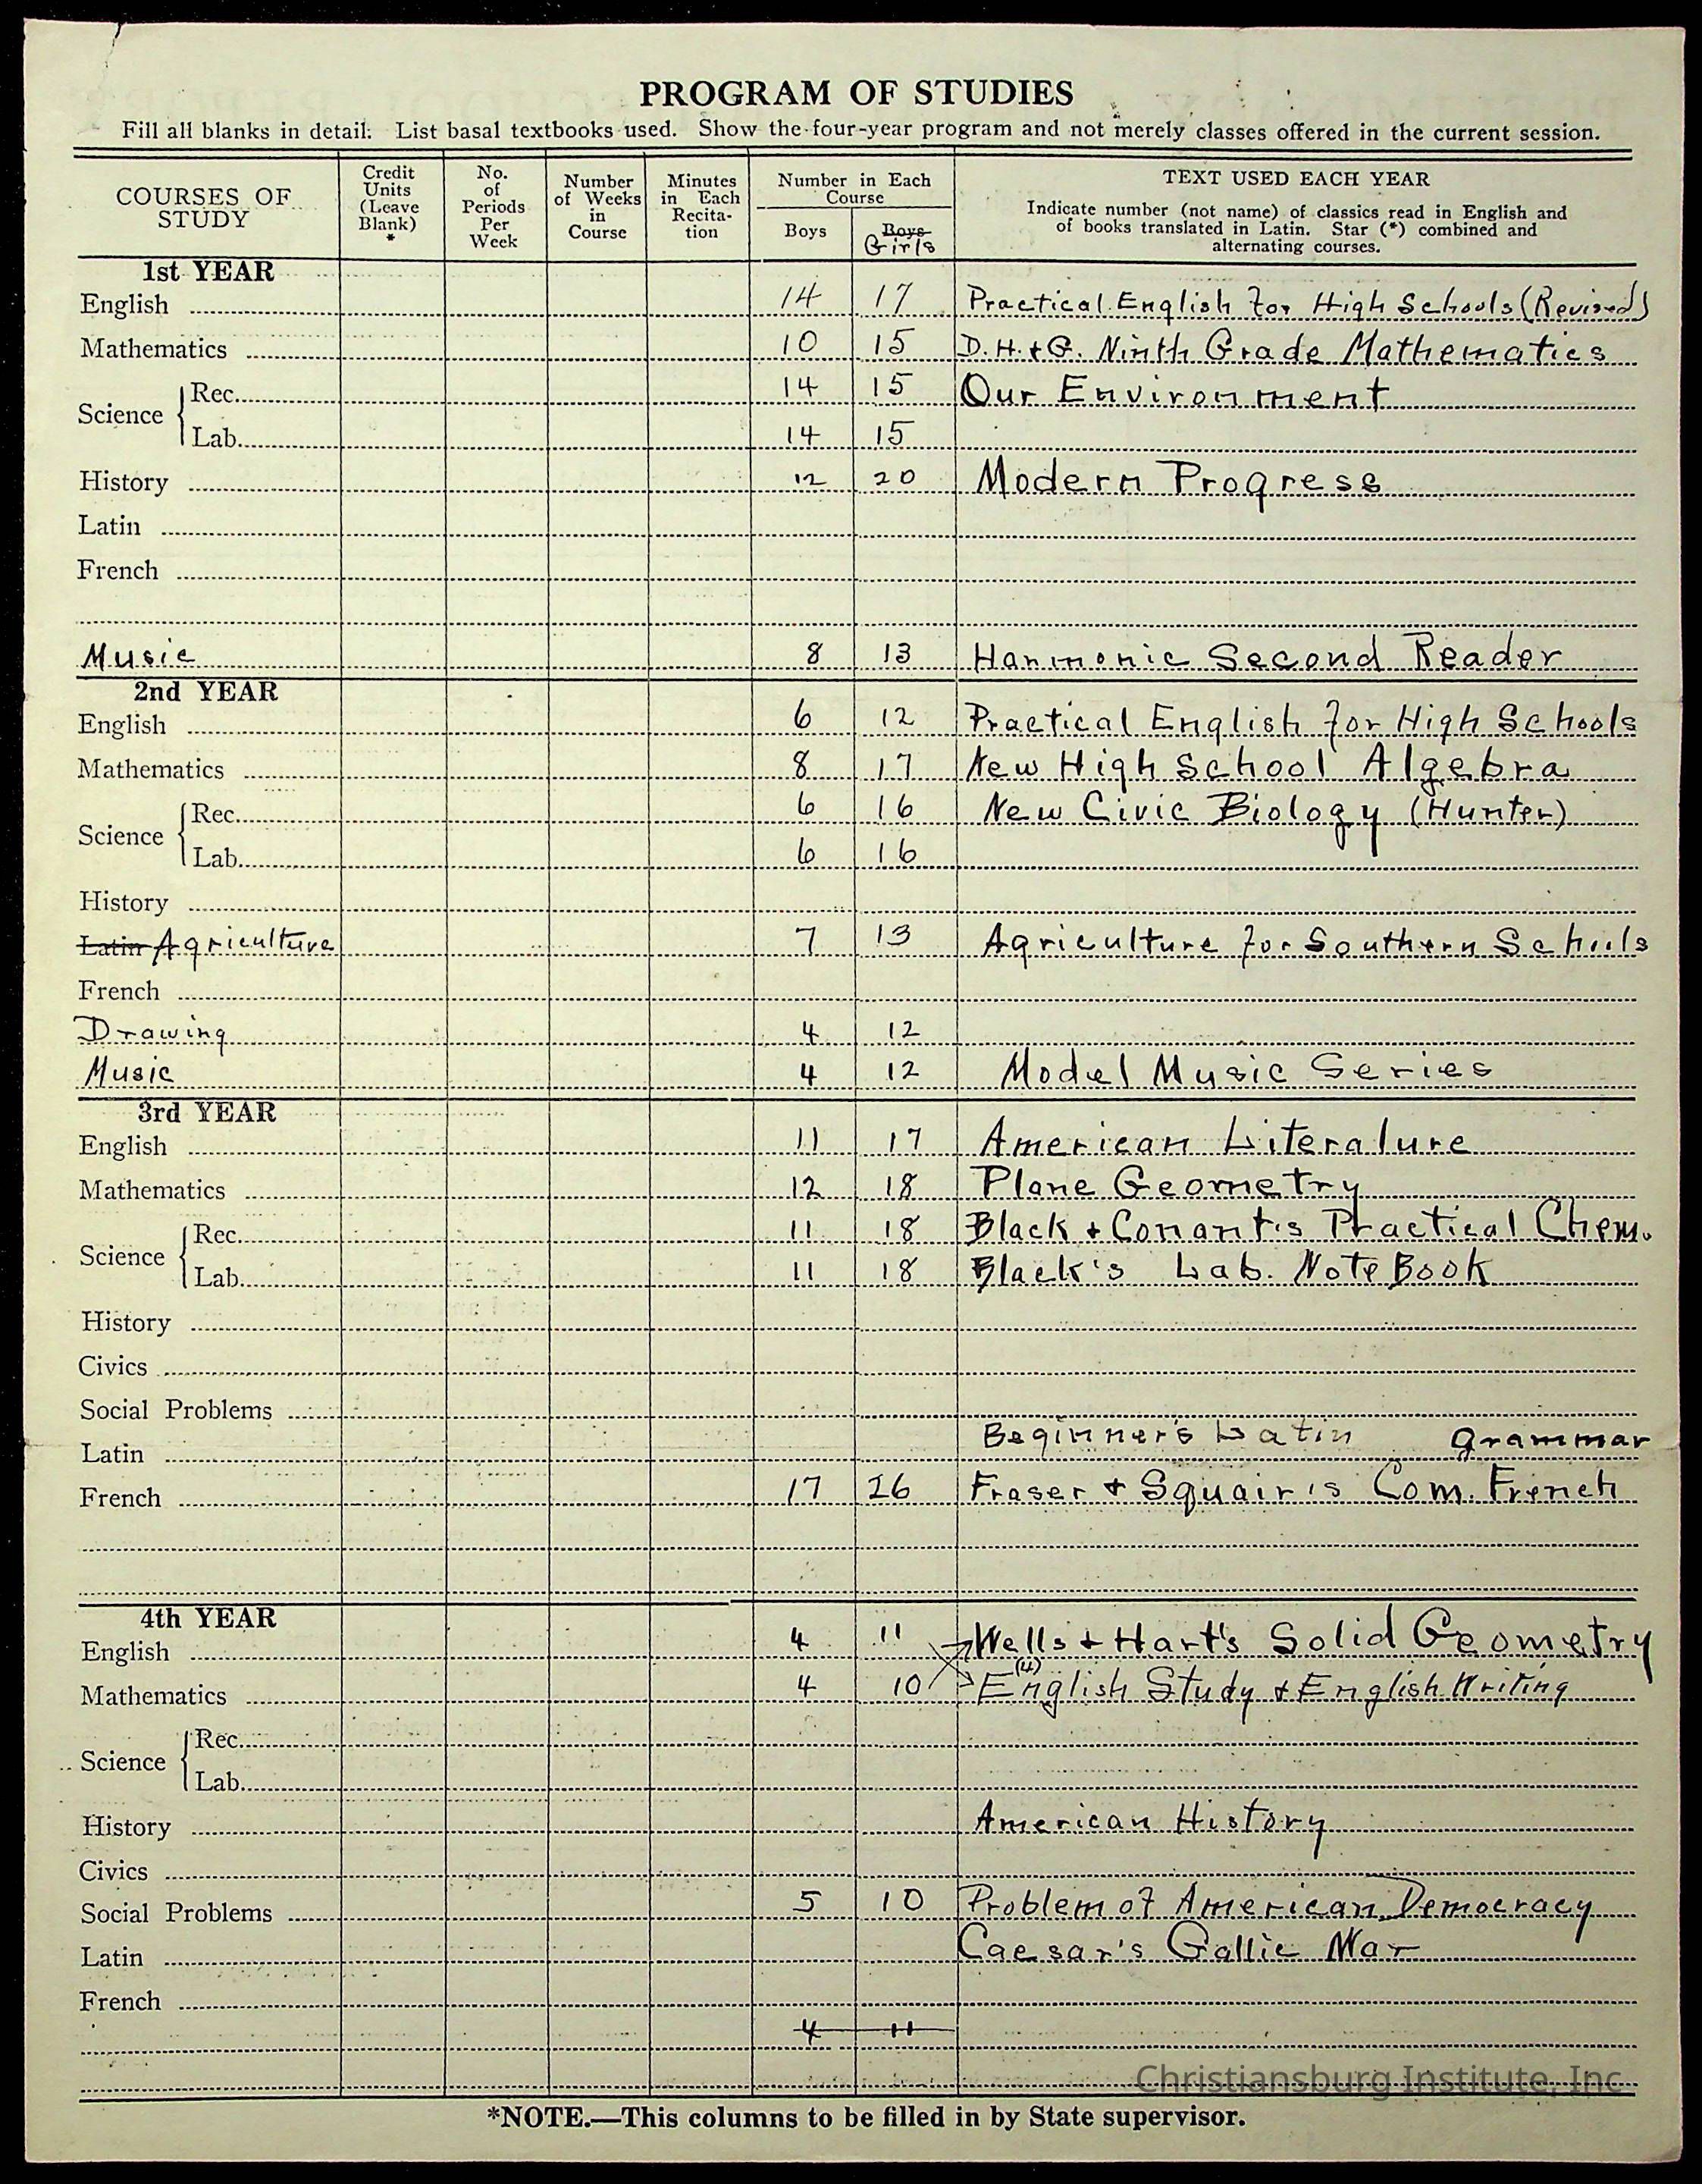 PROGRAM OF STUDIES
Fill all blanks in detail. List basal textbooks used. Show the four-year program and not merely classes offered in the current session.
COURSES OF STUDY
Credit Units (Leave Blank) *
No. of Periods Per Week
Number of Weeks in Course
Minutes in Each Recita-tion
Number in Each Course
Boys
Boys Girls
TEXT USED EACH YEAR
Indicate number (not name) of classics read in English and
of books translated in Latin. Star (*) combined and
alternating courses.
1st YEAR
English 14 17 Practical English for High Schools (Revised)
Mathematics 10 15 D.H.+G. Ninth Grade Mathematics
Science Rec. 14 15 Our Environment
Lab. 14 15
History 12 20 Modern Progress
Latin
French
Music 8 13 Harmonic Second Reader
2nd YEAR
English 6 12 Practical English for High Schools
Mathematics 8 17 New High School Algebra
Science Rec. 6 16 New Civic Biology (Hunter)
Lab. 6 16
History
Latin Agriculture 7 13 Agriculture for Southern Schools
French
Drawing 4 12
Music 4 12 Model Music Series
3rd YEAR
English 11 17 American Literature
Mathematics 12 18 Plane Geometry
Science Rec. 11 18 Black + Conant's Practical Chem.
Lab. 11 18 Black's Lab. Note Book
History
Civics
Social Problems
Latin Beginner's Latin Grammar
French 17 26 Fraser + Squair's Com. French
4th YEAR
English 4 11 Wells + Hart's Solid Geometry
Mathematics 4 10 English (4) Study + English Writing
Science Rec.
Lab.
History American History
Civics
Social Problems 5 10 Problem of American Democracy
Latin Caesar's Gallic War
French
4 11
Christiansburg Institute, Inc
*NOTE.—This columns to be filled in by State supervisor.